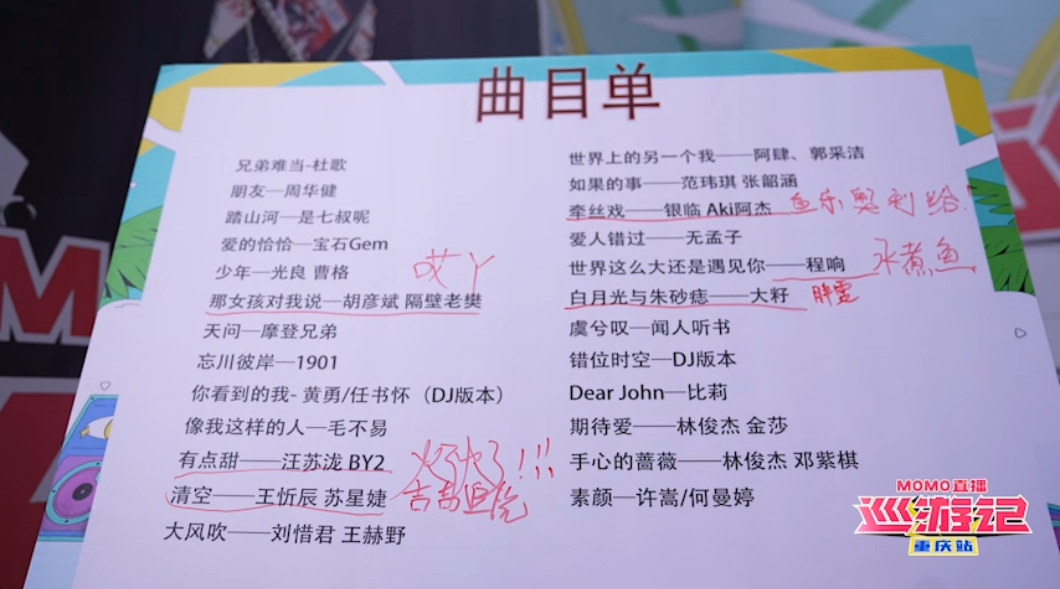 曲目单
兄弟难当-杜歌
朋友—周华健
踏山河—是七叔呢
爱的恰恰—宝石Gem
少年—光良 曹格
哎丫
那女孩对我说—胡彦斌 隔壁老樊
天问—摩登兄弟
忘川彼岸—1901
你看到的我- 黄勇/任书怀（DJ版本）
像我这样的人—毛不易
有点甜——汪苏泷 BY2
火了火了!!!
清空——王忻辰 苏星婕
大风吹——刘惜君 王赫野
世界上的另一个我——阿肆、郭采洁
如果的事——范玮琪 张韶涵
牵丝戏——银临 Aki阿杰 鱼乐奥利给!
爱人错过——无孟子
世界这么大还是遇见你——程响 水煮鱼
白月光与朱砂痣——大籽 胖雯
虞兮叹—闻人听书
错位时空—DJ版本
Dear John—比莉
期待爱——林俊杰 金莎
手心的蔷薇——林俊杰 邓紫棋
素颜—许嵩/何曼婷
M
MOMO直播
巡游记
重庆站